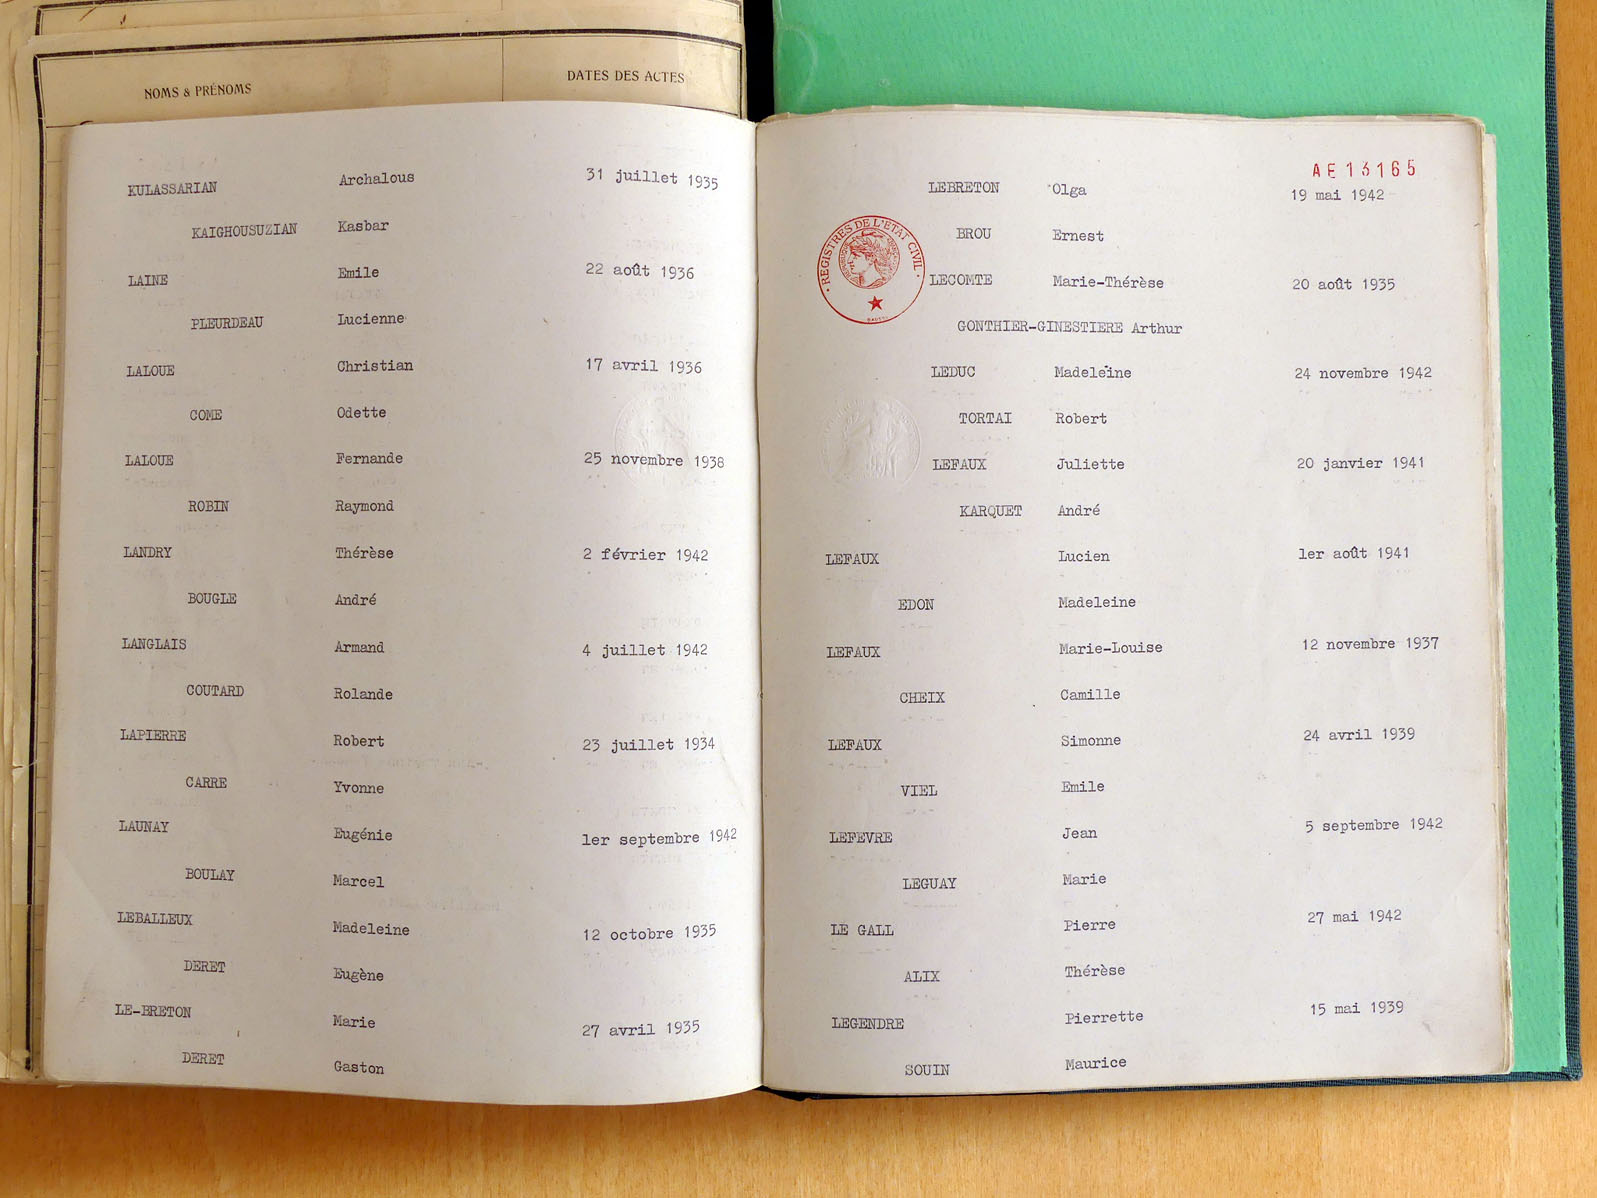 NOMS & PRÉNOMS DATES DES ACTES
KULASSARIAN Archalous 31 juillet 1935
KAIGHOUSUZIAN Kasbar
LAINE Emile 22 août 1936
PLEURDEAU Lucienne
LALOUE Christian 17 avril 1936
COME Odette
LALOUE Fernande 25 novembre 1938
ROBIN Raymond
LANDRY Thérèse 2 février 1942
BOUGLE André
LANGLAIS Armand 4 juillet 1942
COUTARD Rolande
LAPIERRE Robert 23 juillet 1934
CARRE Yvonne
LAUNAY Eugénie 1er septembre 1942
BOULAY Marcel
LEBALLEUX Madeleine 12 octobre 1935
DERET Eugène
LE-BRETON Marie 27 avril 1935
DERET Gaston
AE13165
LEBRETON Olga 19 mai 1942
BROU Ernest
REGISTRES DE L'ÉTAT CIVIL
LECOMTE Marie-Thérèse 20 août 1935
GONTHIER-GINESTIERE Arthur
LEDUC Madeleine 24 novembre 1942
TORTAI Robert
LEFAUX Juliette 20 janvier 1941
KARQUET André
LEFAUX Lucien 1er août 1941
EDON Madeleine
LEFAUX Marie-Louise 12 novembre 1937
CHEIX Camille
LEFAUX Simonne 24 avril 1939
VIEL Emile
LEFEVRE Jean 5 septembre 1942
LEGUAY Marie
LE GALL Pierre 27 mai 1942
ALIX Thérèse
LEGENDRE Pierrette 15 mai 1939
SOUIN Maurice